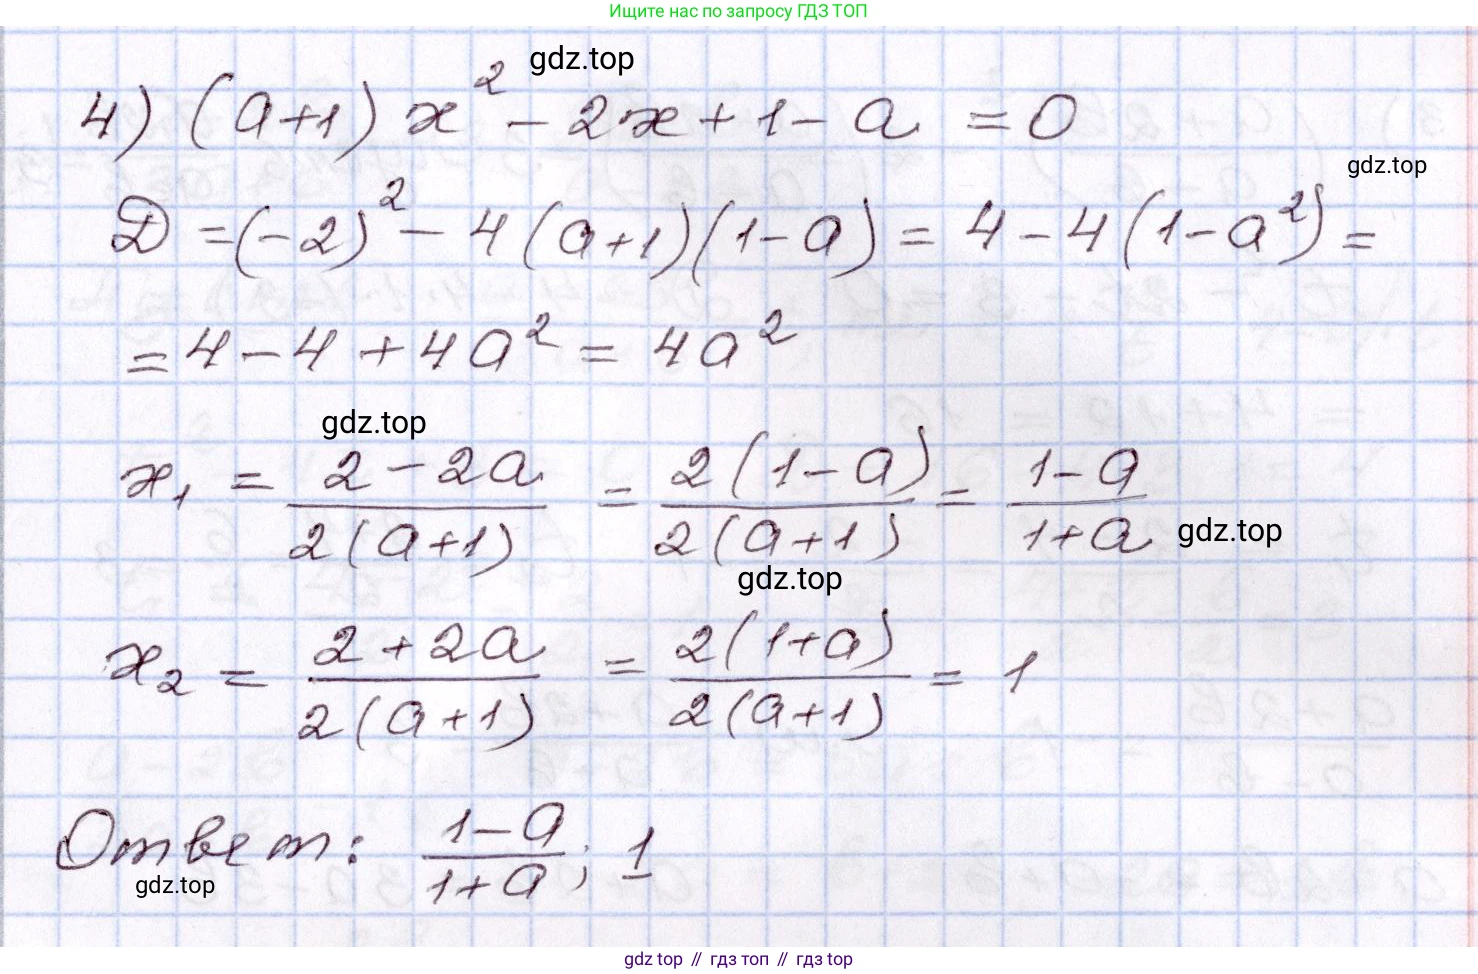 Ищите нас по запросу ГДЗ ТОП
gdz.top
4) (a+1) x² - 2x + 1 - a = 0
gdz.top
D = (-2)² - 4(a+1)(1-a) = 4 - 4(1-a²) =
= 4 - 4 + 4a² = 4a²
gdz.top
x₁ = (2 - 2a)/(2(a+1)) = (2(1-a))/(2(a+1)) = (1-a)/(1+a)
gdz.top
gdz.top
x₂ = (2 + 2a)/(2(a+1)) = (2(1+a))/(2(a+1)) = 1
Ответ: (1-a)/(1+a); 1
gdz.top
gdz top // гдз топ // гдз top